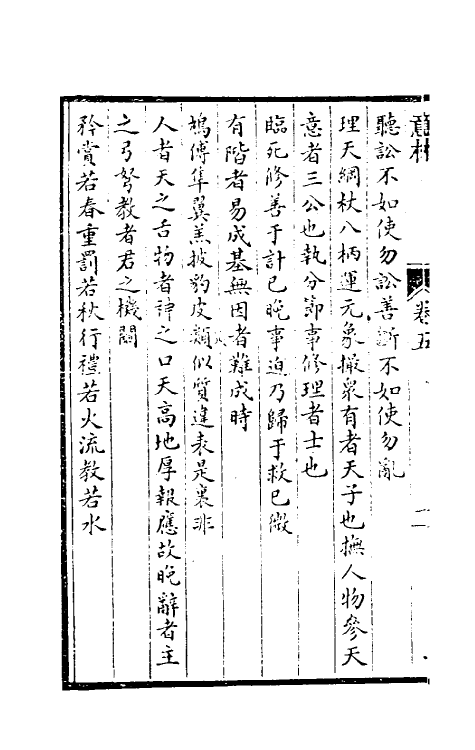 意林
卷五
二
聽訟不如使勿訟善斷不如使勿亂
理天綱杖八柄運元象撮衆有者天子也撫人物參天
意者三公也執分節事修理者士也
臨死修善于計已晚事迫乃歸于救已微
有階者易成基無因者難成時
鳩傅隼翼羔披豹皮類似質違表是裏非
人者天之舌物者神之口天高地厚報應故晚辭者主
之弓弩教者君之機關
矜賞若春重罰若秋行禮若火流教若水